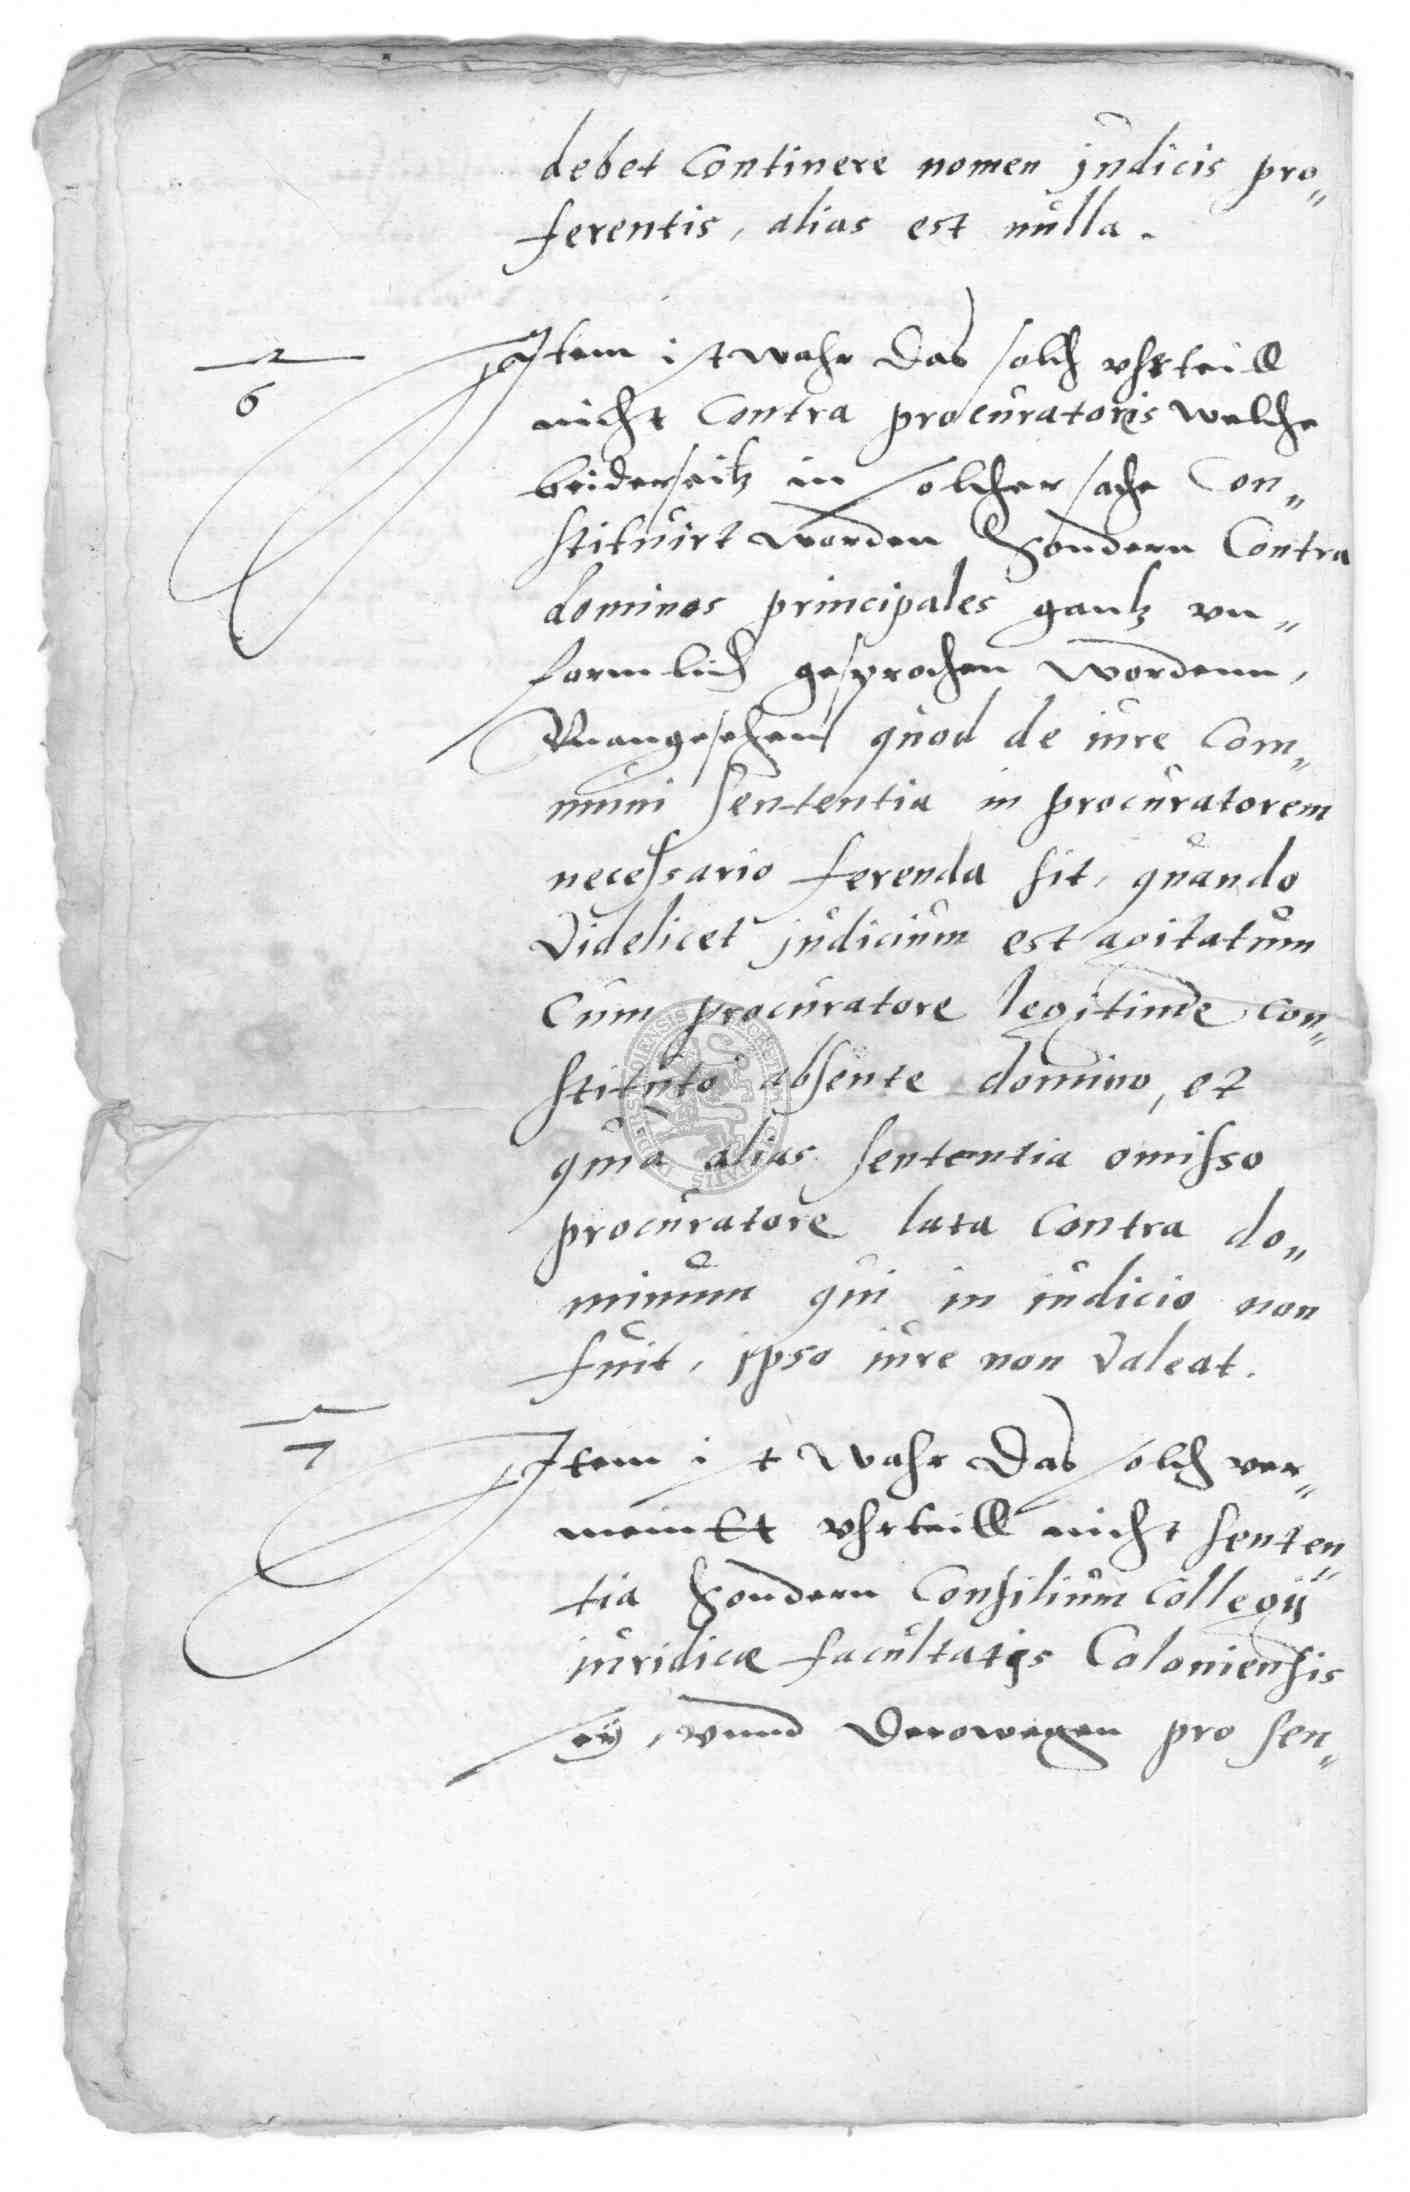 debet Continere nomen judicis pro„
ferentis, alias est nulla.
6
Item ist wahr das solch vhrteill
nicht Contra procuratoris welche
beiderseitz in solcher sache Con„
stituirt worden Sondern Contra
dominos principales gantz vn„
formlich gesprochen wordenn,
Vnangesehen quod de iure Com„
muni sententia in procuratorem
necessario ferenda sit, quando
Videlicet judicium est agitatum
Cum procuratore legitime con„
stituto absente domino, et
quia alias sententia omisso
procuratore lata Contra do„
minum qui in iudicio non
fuit, ipso iure non Valeat.
7
Item ist wahr das solch ver„
meintt vhrteill nicht senten„
tia Sondern Consilium Collegij
iuridicæ facultatis Coloniensis
sey, vnnd derowegen pro sen„